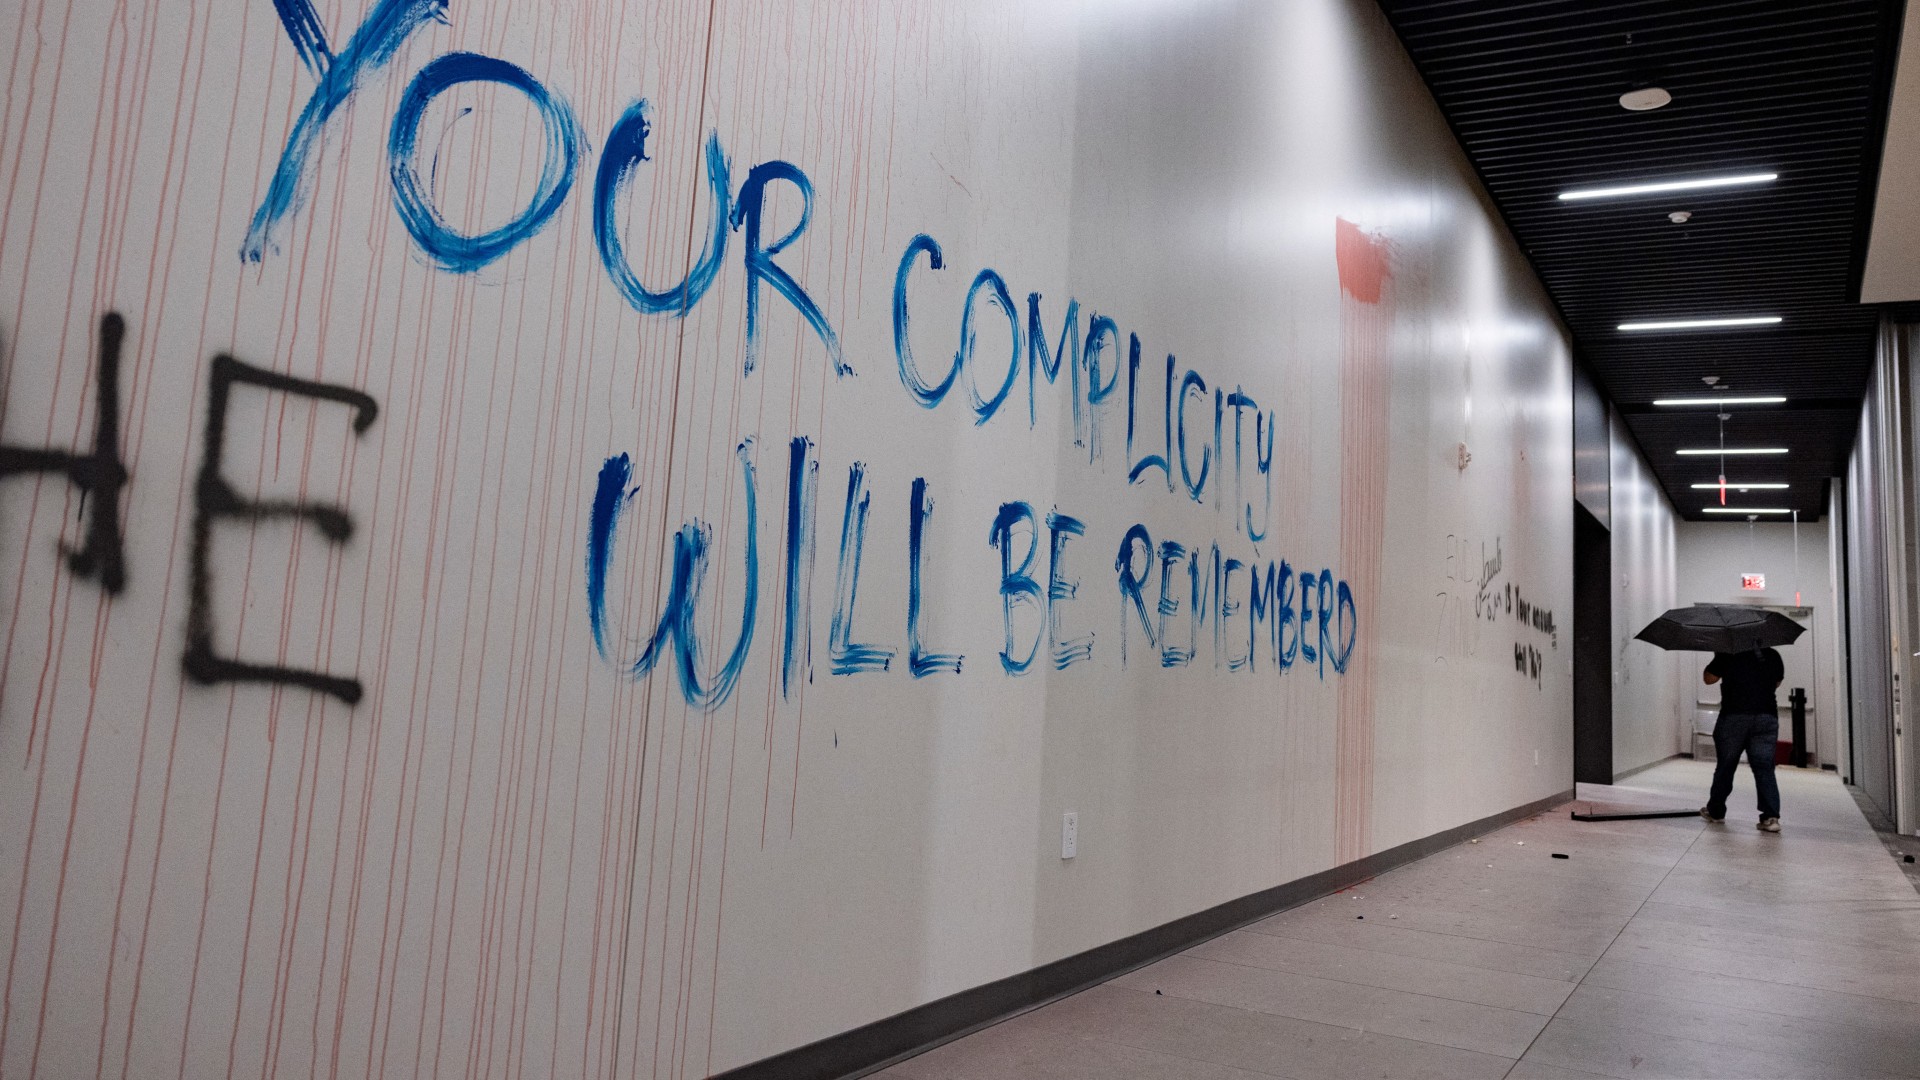 YOUR COMPLICITY
WILL BE REMEMBERD
HE
END
IS YOUR